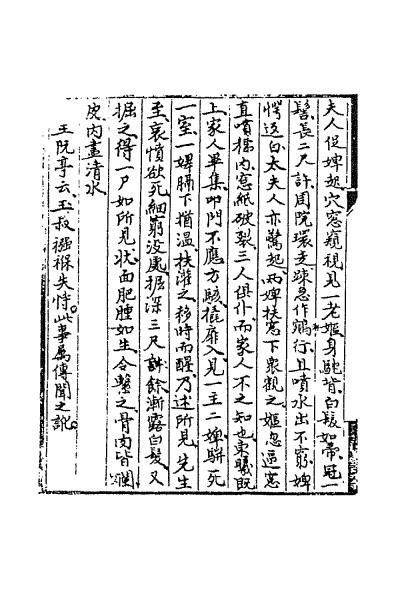 夫人促婢起穴窓窺視見一老嫗身駝背白髮如帚冠一
髻長二尺許周院環走竦急作鶴行且噴水出不窮婢
愕返白太夫人亦驚起兩婢扶窓下聚觀之嫗忽逼窓
直噴櫺內窓紙破裂三人俱仆而家人不之知也東曦既
上家人畢集叩門不應方駭撬扉入見一主二婢駢死
一室一婢膈下猶溫扶灌之移時而醒乃述所見先生
至哀憤欲死細窮没處掘深三尺許餘漸露白髮又
掘之得一尸如所見狀面肥腫如生令擊之骨肉皆爛
皮內盡清水
王阮亭云玉叔襁褓失恃此事屬傳聞之訛